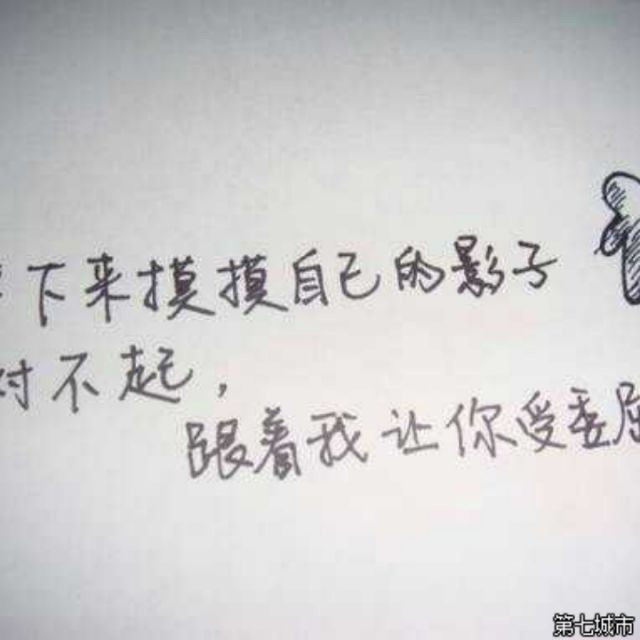 下来摸摸自己的影子
对不起，
跟着我让你受委屈
第七城市